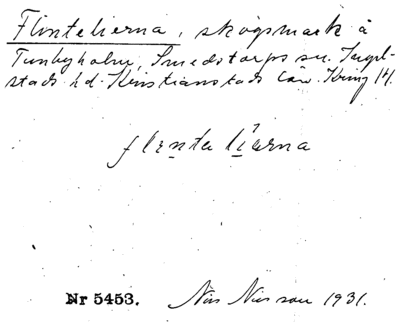 Flintelierna, skogsmark å
Tunbyholm, Smedstorps sn. Ingel-
stads hd. Kristianstads län. Kring 14.
flenta lierna
Nr 5453. Nils Nilsson 1931.